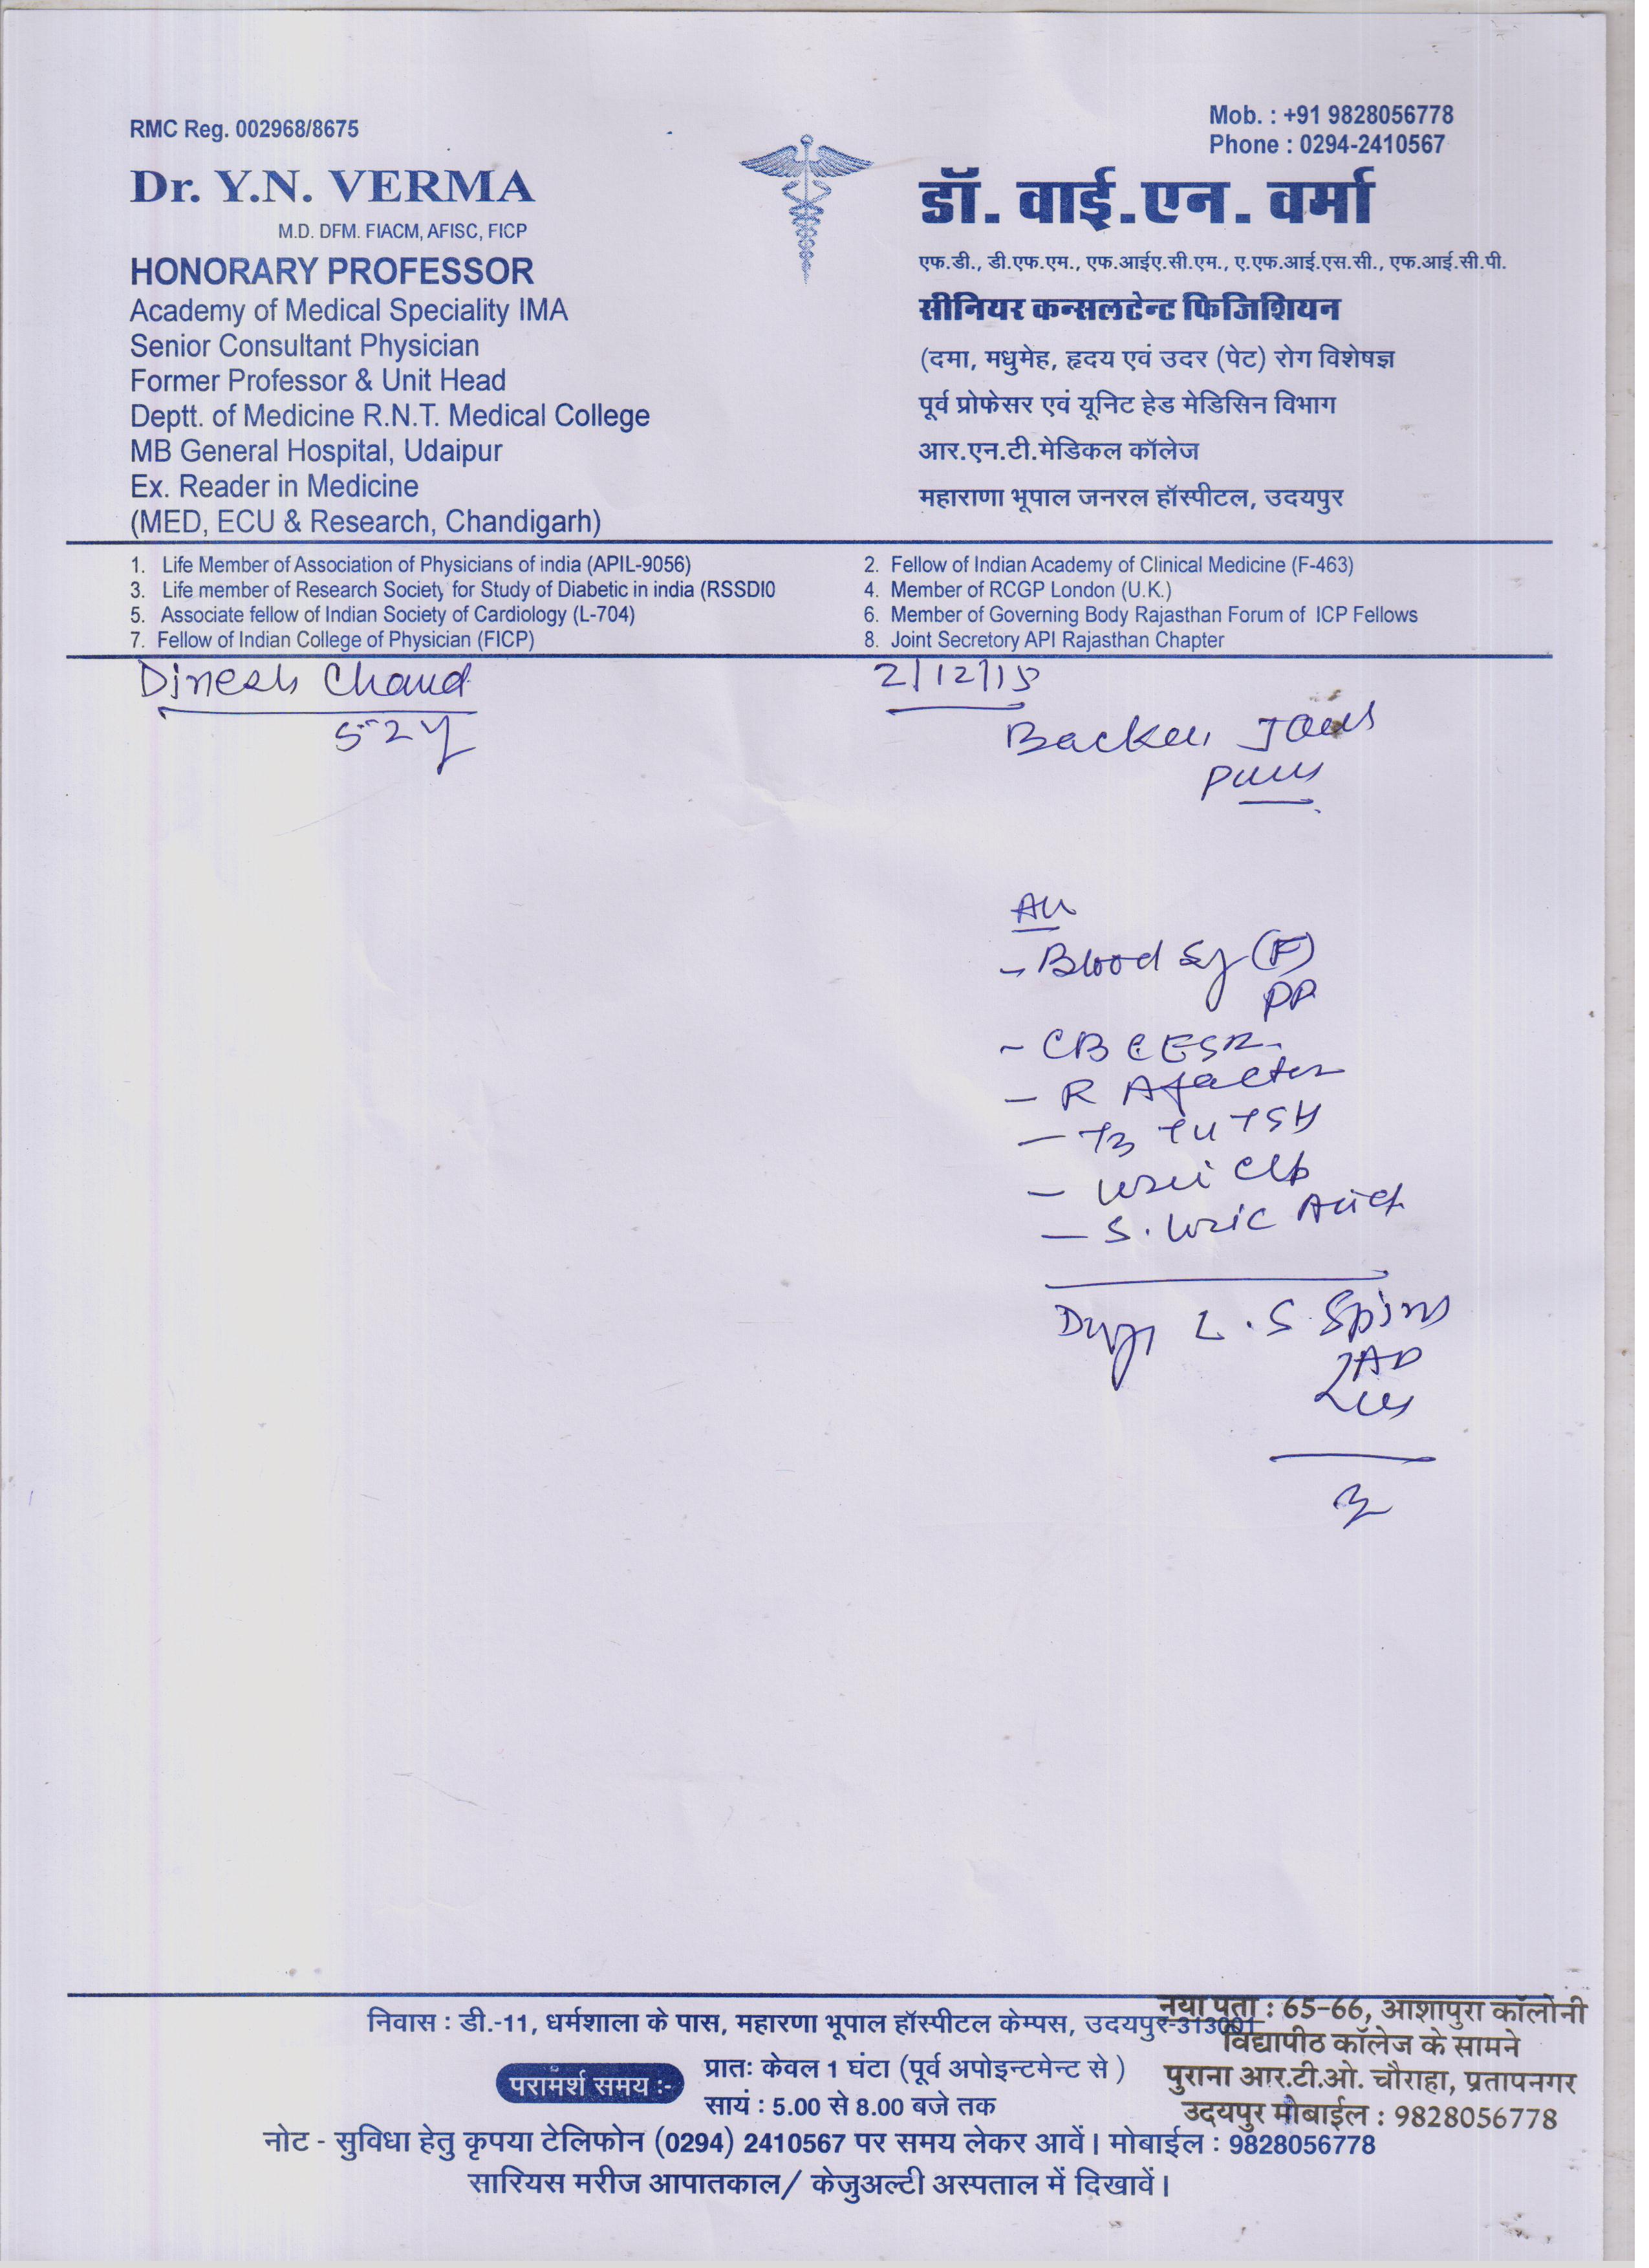 RMC Reg. 002968/8675
Mob. : +91 9828056778
Phone : 0294-2410567
Dr. Y.N. VERMA
M.D. DFM. FIACM, AFISC, FICP
HONORARY PROFESSOR
Academy of Medical Speciality IMA
Senior Consultant Physician
Former Professor & Unit Head
Deptt. of Medicine R.N.T. Medical College
MB General Hospital, Udaipur
Ex. Reader in Medicine
(MED, ECU & Research, Chandigarh)
डॉ. वाई.एन. वर्मा
एफ.डी., डी.एफ.एम., एफ.आईए.सी.एम., ए.एफ.आई.एस.सी., एफ.आई.सी.पी.
सीनियर कन्सलटेन्ट फिजिशियन
(दमा, मधुमेह, हृदय एवं उदर (पेट) रोग विशेषज्ञ
पूर्व प्रोफेसर एवं यूनिट हेड मेडिसिन विभाग
आर.एन.टी.मेडिकल कॉलेज
महाराणा भूपाल जनरल हॉस्पीटल, उदयपुर
1. Life Member of Association of Physicians of india (APIL-9056)
2. Fellow of Indian Academy of Clinical Medicine (F-463)
3. Life member of Research Society for Study of Diabetic in india (RSSDI0
4. Member of RCGP London (U.K.)
5. Associate fellow of Indian Society of Cardiology (L-704)
6. Member of Governing Body Rajasthan Forum of ICP Fellows
7. Fellow of Indian College of Physician (FICP)
8. Joint Secretary API Rajasthan Chapter
Dinesh Chand
2/12/15
52y
- Blood Sg (F)
PP
- CBC ESR
- R A factor
- T3 T4 TSH
- S. Uric Acid
L.S. Spine
निवास : डी.-11, धर्मशाला के पास, महारणा भूपाल हॉस्पीटल केम्पस, उदयपुर-313001
नया पता : 65-66, आशापुरा कॉलोनी
विद्यापीठ कॉलेज के सामने
पुराना आर.टी.ओ. चौराहा, प्रतापनगर
उदयपुर मोबाईल : 9828056778
परामर्श समय :-
प्रातः केवल 1 घंटा (पूर्व अपोइन्टमेन्ट से )
सायं : 5.00 से 8.00 बजे तक
नोट - सुविधा हेतु कृपया टेलिफोन (0294) 2410567 पर समय लेकर आवें। मोबाईल : 9828056778
सारियस मरीज आपातकाल/ केजुअल्टी अस्पताल में दिखावें।